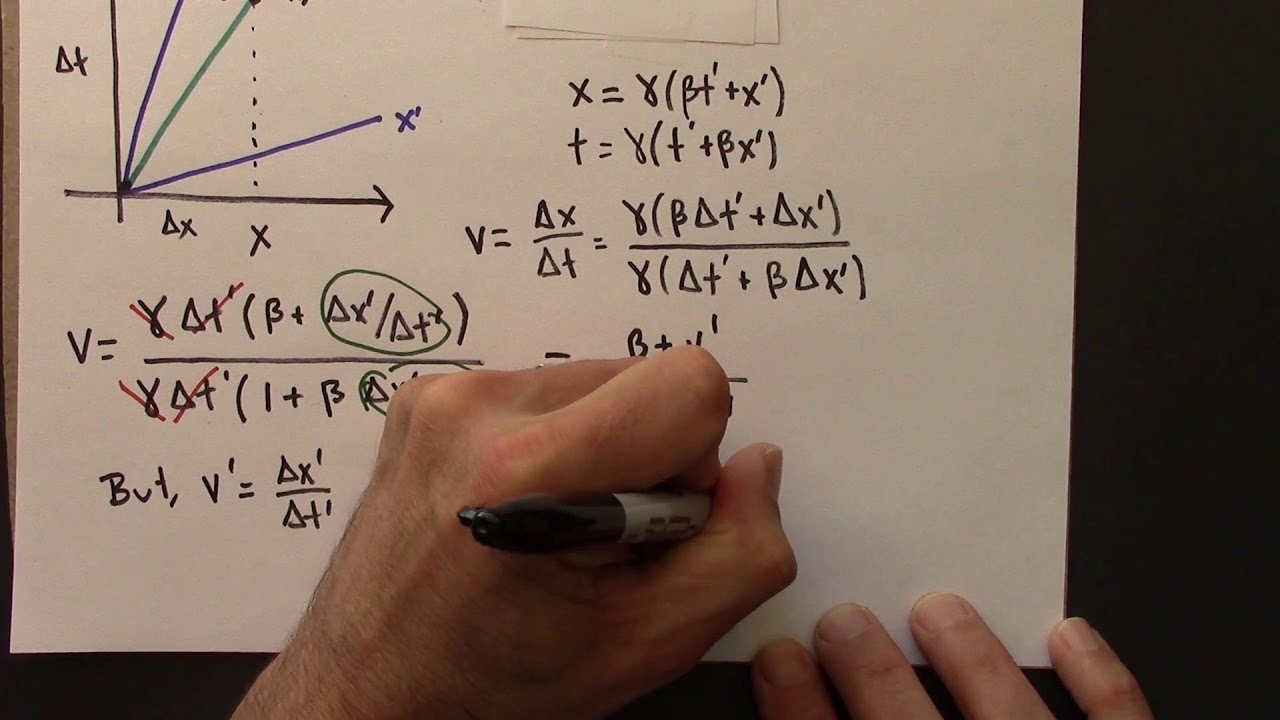 Δt
x'
Δx
X
x = γ(βt' + x')
t = γ(t' + βx')
V = Δx/Δt = γ(βΔt' + Δx') / γ(Δt' + βΔx')
V = γΔt'(β + Δx'/Δt') / γΔt'(1 + β Δx'
= β + v'
But, V' = Δx'/Δt'